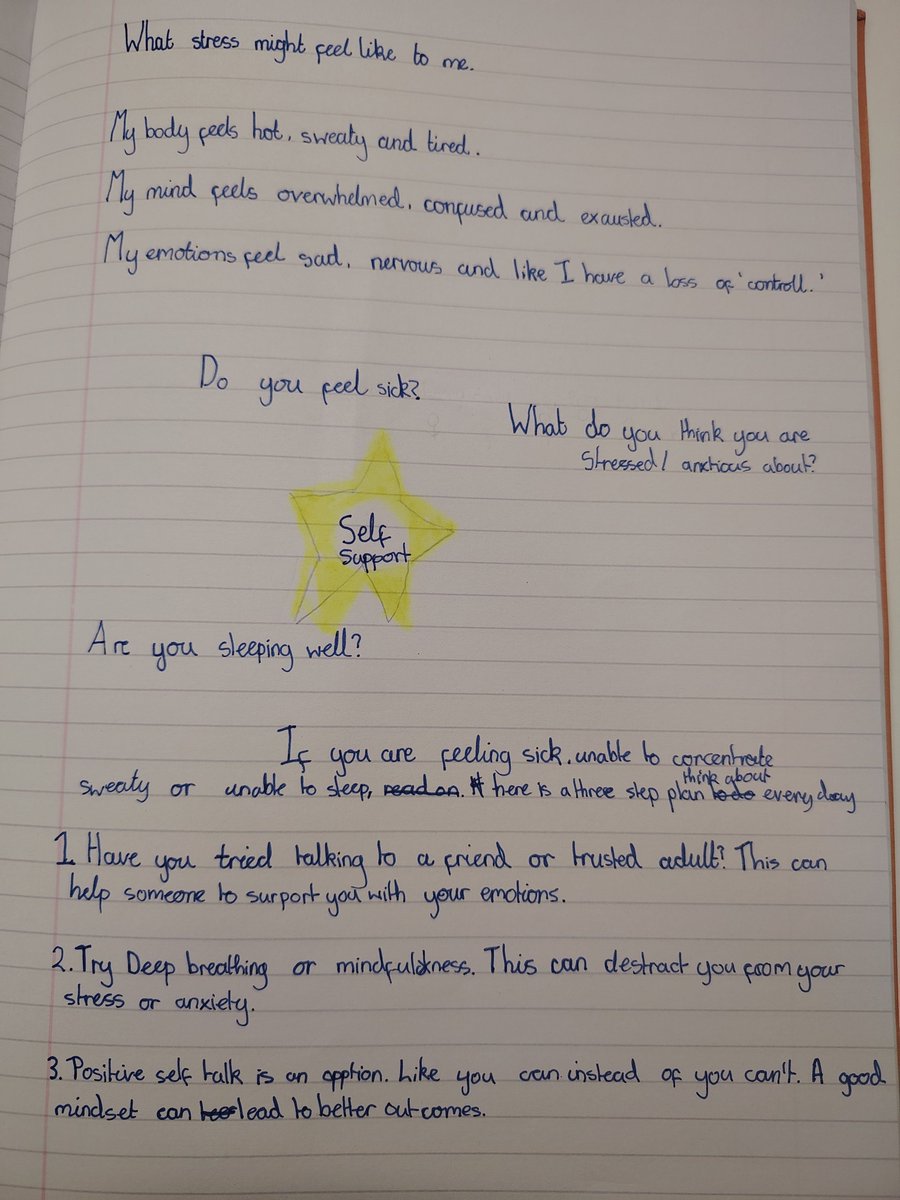 What stress might feel like to me.
My body feels hot, sweaty and tired.
My mind feels overwhelmed, confused and exausted.
My emotions feel sad, nervous and like I have a loss of 'controll.'
Do you feel sick?
What do you think you are
stressed/ anctious about?
Self
Support
Are you sleeping well?
If you are feeling sick, unable to concentrate
sweaty or unable to sleep, read on. H here is a three step plan to do think about every day
1. Have you tried talking to a friend or trusted adult? This can
help someone to surport you with your emotions.
2. Try Deep breathing or mindfulness. This can destract you from your
stress or anxiety.
3. Positive self talk is an opption. Like you can instead of you can't. A good
mindset can lead to better outcomes.